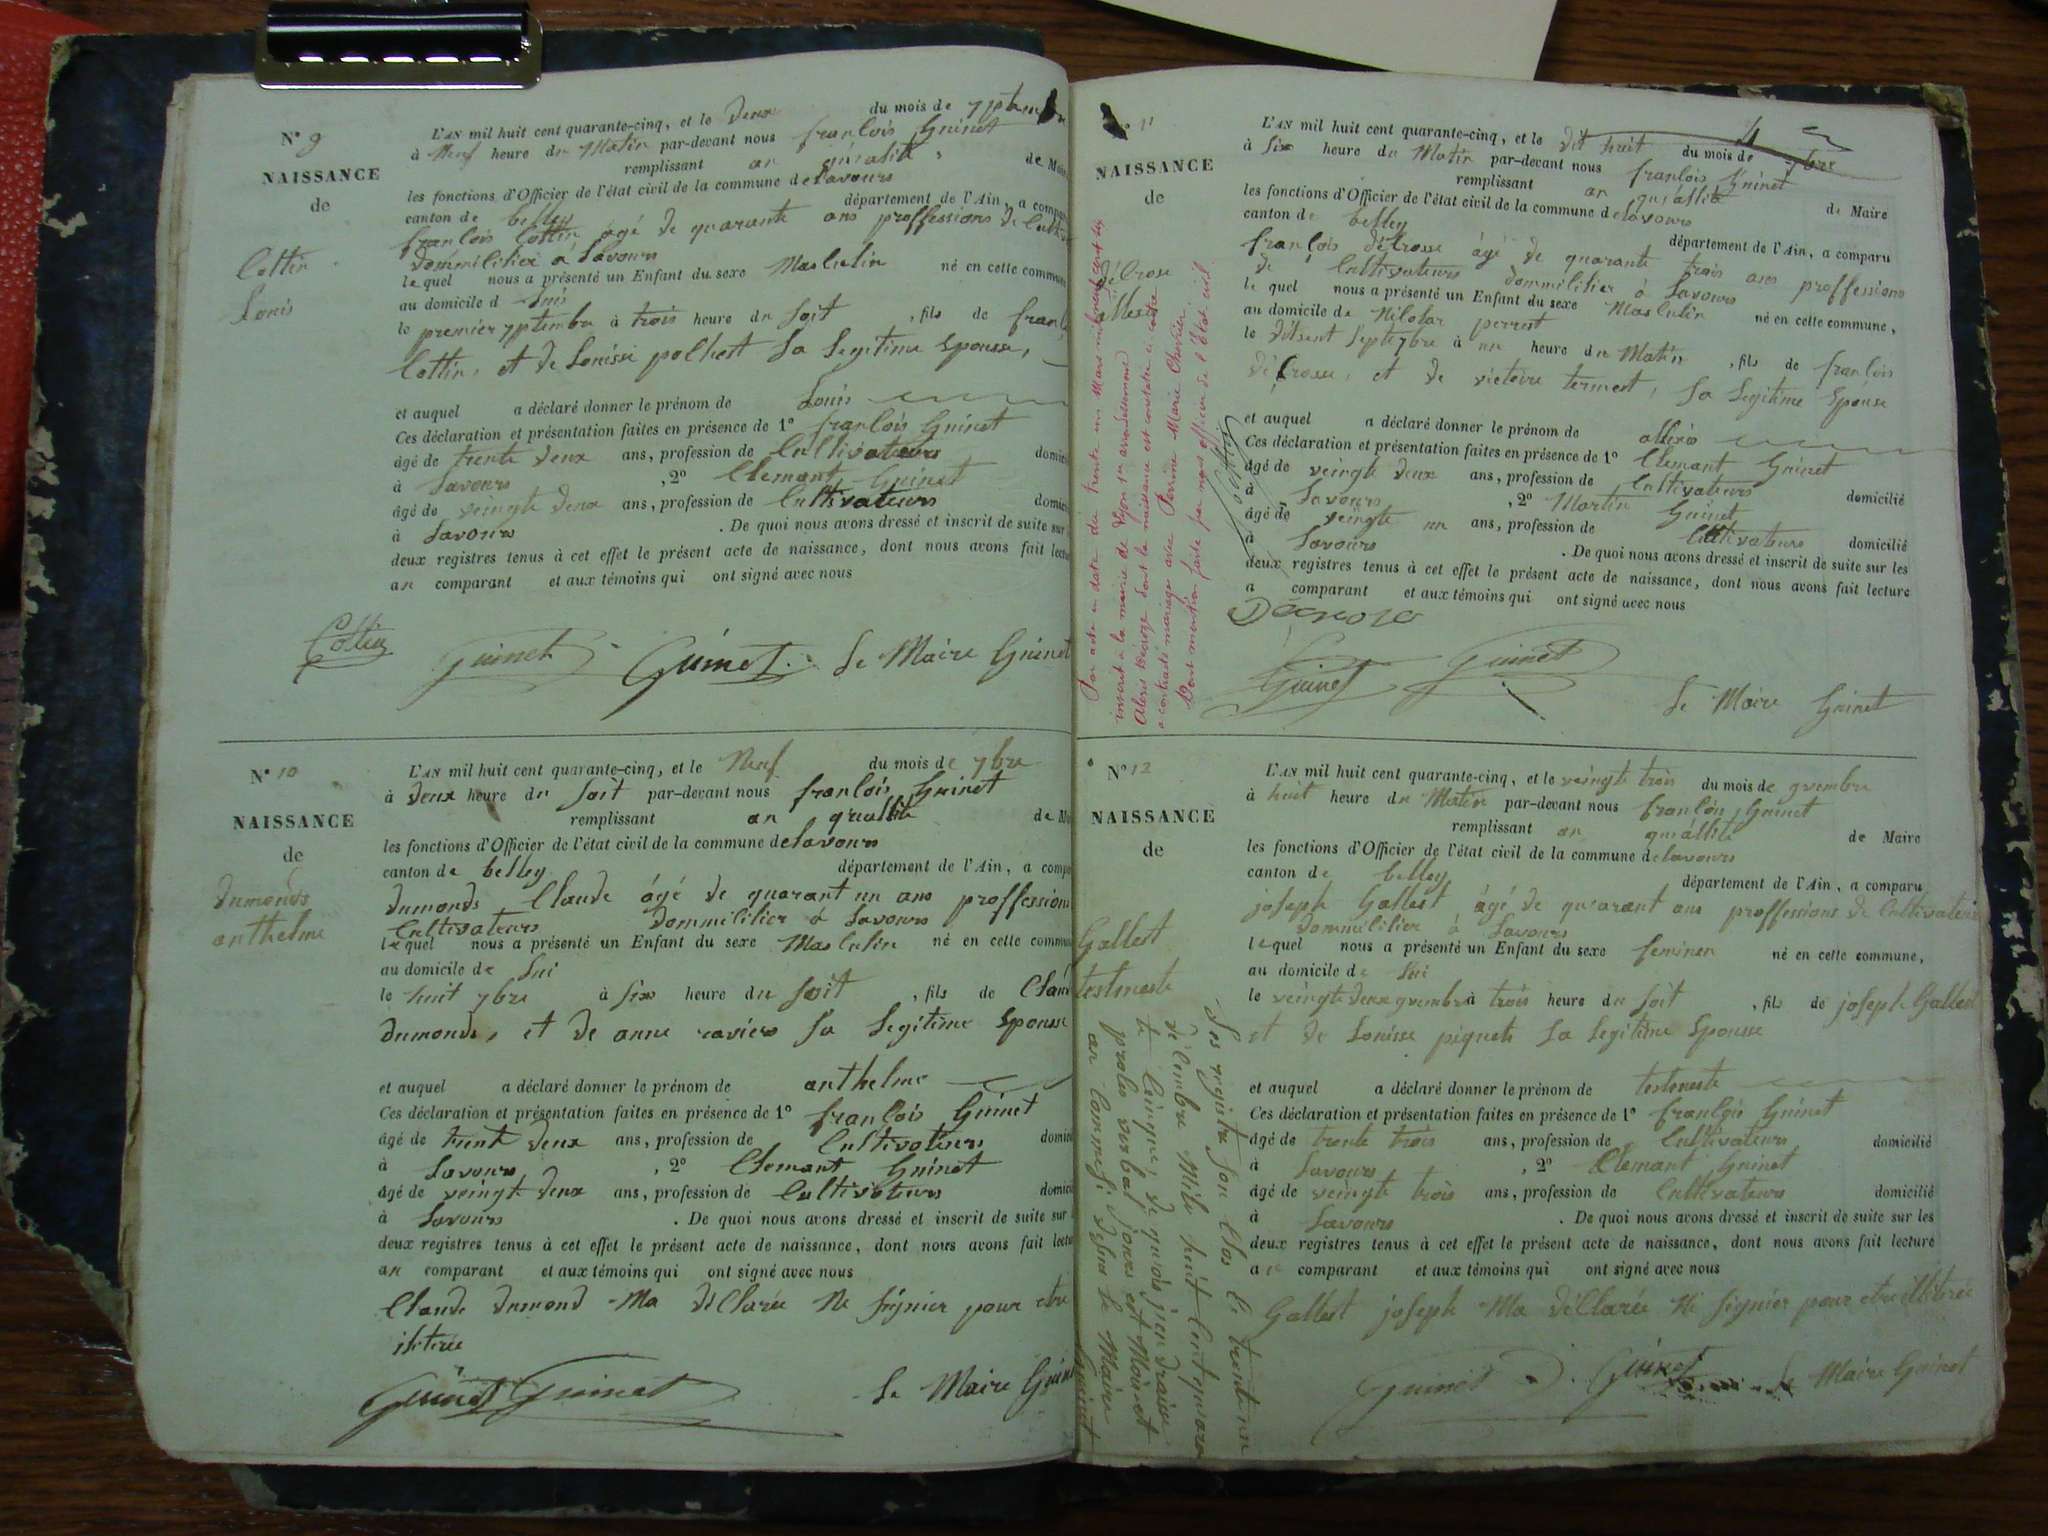 N° 9
NAISSANCE
de
Cottin
Louis
L'AN mil huit cent quarante-cinq, et le deux du mois de 7ptembre
à Neuf heure du Matin par-devant nous françois Guinet
remplissant an de Maire
les fonctions d'Officier de l'état civil de la commune de Lavours
canton de belley département de l'Ain, a comparu
françois Cottin âgé de quarante ans proffessions de Cultiv
dommicilier à Lavours
le quel nous a présenté un Enfant du sexe Masculin né en cette commune
au domicile d
le premier 7ptembre à trois heure du Soit , fils de franç
Cottin, et de Louisse polhest Sa Legitime Epousse,
et auquel a déclaré donner le prénom de Louis
Ces déclaration et présentation faites en présence de 1° françois Guinet
âgé de trente deux ans, profession de Cultivateurs domici
à Lavours , 2° Clemant Guinet
âgé de veingte deux ans, profession de Cultivateurs domici
à Lavours . De quoi nous avons dressé et inscrit de suite sur
deux registres tenus à cet effet le présent acte de naissance, dont nous avons fait lectu
au comparant et aux témoins qui ont signé avec nous
Cottin Guinet Guinet Le Maire Guinet
N° 10
NAISSANCE
de
dumonds
anthelme
L'AN mil huit cent quarante-cinq, et le Neuf du mois de 7bre
à deux heure du Soit par-devant nous françois Guinet
remplissant an quallite de Ma
les fonctions d'Officier de l'état civil de la commune de Lavours
canton de belley département de l'Ain, a compa
dumonds Claude âgé de quarant un ans proffession
Cultivateurs dommicilier à Lavours
le quel nous a présenté un Enfant du sexe Masculin né en cette commu
au domicile de Lui
le huit 7bre à Six heure du Soit , fils de Clau
dumonds, et de anne ravier Sa Legitime Epousse
et auquel a déclaré donner le prénom de anthelme
Ces déclaration et présentation faites en présence de 1° françois Guinet
âgé de trente deux ans, profession de Cultivateurs domici
à Lavours , 2° Clemant Guinet
âgé de veingte deux ans, profession de Cultivateurs domici
à Lavours . De quoi nous avons dressé et inscrit de suite sur
deux registres tenus à cet effet le présent acte de naissance, dont nous avons fait lectu
au comparant et aux témoins qui ont signé avec nous
Claude dumond Ma déClarée Ne Signier pour etre
Guinet Guinet Le Maire Guin
N° 11
NAISSANCE
de
déCrose
L'AN mil huit cent quarante-cinq, et le dit huit du mois de 7bre
à Six heure du Matin par-devant nous françois Guinet
remplissant an quallité de Maire
les fonctions d'Officier de l'état civil de la commune de Lavours
canton de belley département de l'Ain, a comparu
françois déCrosse âgé de quarante trois ans proffessions
de Cultivateurs dommicilier à Lavours
le quel nous a présenté un Enfant du sexe Masculin né en cette commune,
au domicile de Nicolas perrest
le ditsent Septe7bre à un heure du Matin , fils de françois
déCrosse, et de victoire termest, Sa Legitime Epouse
et auquel a déclaré donner le prénom de
Ces déclaration et présentation faites en présence de 1° Clemant Guinet
âgé de veingte deux ans, profession de Cultivateurs domicilié
à Lavours , 2° Martin Guinet
âgé de veingte un ans, profession de Cultivateurs domicilié
à Lavours . De quoi nous avons dressé et inscrit de suite sur les
deux registres tenus à cet effet le présent acte de naissance, dont nous avons fait lecture
a comparant et aux témoins qui ont signé avec nous
Décroze
Guinet Guinet
Le Maire Guinet
Par acte en date du trente un Mars mil huit cent
inscrit à la mairie de Lyon arrondissement
Alexis Décroze dont la naissance est constatée ci-contre
a contracté mariage avec Perrine Marie Chevrier
Dont mention faite par nous officier de l'Etat civil.
N° 12
NAISSANCE
de
Gallest
L'AN mil huit cent quarante-cinq, et le veingte trois du mois de 9vembre
à huit heure du Matin par-devant nous françois Guinet
remplissant an quallité de Maire
les fonctions d'Officier de l'état civil de la commune de Lavours
canton de belley département de l'Ain, a comparu
joseph Gallest âgé de quarant ans proffessions de Cultivateurs
dommicilier à Lavours
le quel nous a présenté un Enfant du sexe feminen né en cette commune,
au domicile de Lui
le veingte deux 9vembre à trois heure du Soit , fils de joseph Gallest
et de Louisse piquet Sa Legitime Epousse
et auquel a déclaré donner le prénom de
Ces déclaration et présentation faites en présence de 1° françois Guinet
âgé de trente trois ans, profession de Cultivateurs domicilié
à Lavours , 2° Clemant Guinet
âgé de veingte trois ans, profession de Cultivateurs domicilié
à Lavours . De quoi nous avons dressé et inscrit de suite sur les
deux registres tenus à cet effet le présent acte de naissance, dont nous avons fait lecture
au comparant et aux témoins qui ont signé avec nous
Gallest joseph Ma déClarée Ne Signier pour etre
Guinet Guinet Le Maire Guinet
Ses registre Son Clos le trent un
décembre Mile huit Cent quara
te Cinque, de quois jieu draisse
proces verbal jours est Mois et
an Commesi desus Le Maire
Guinet